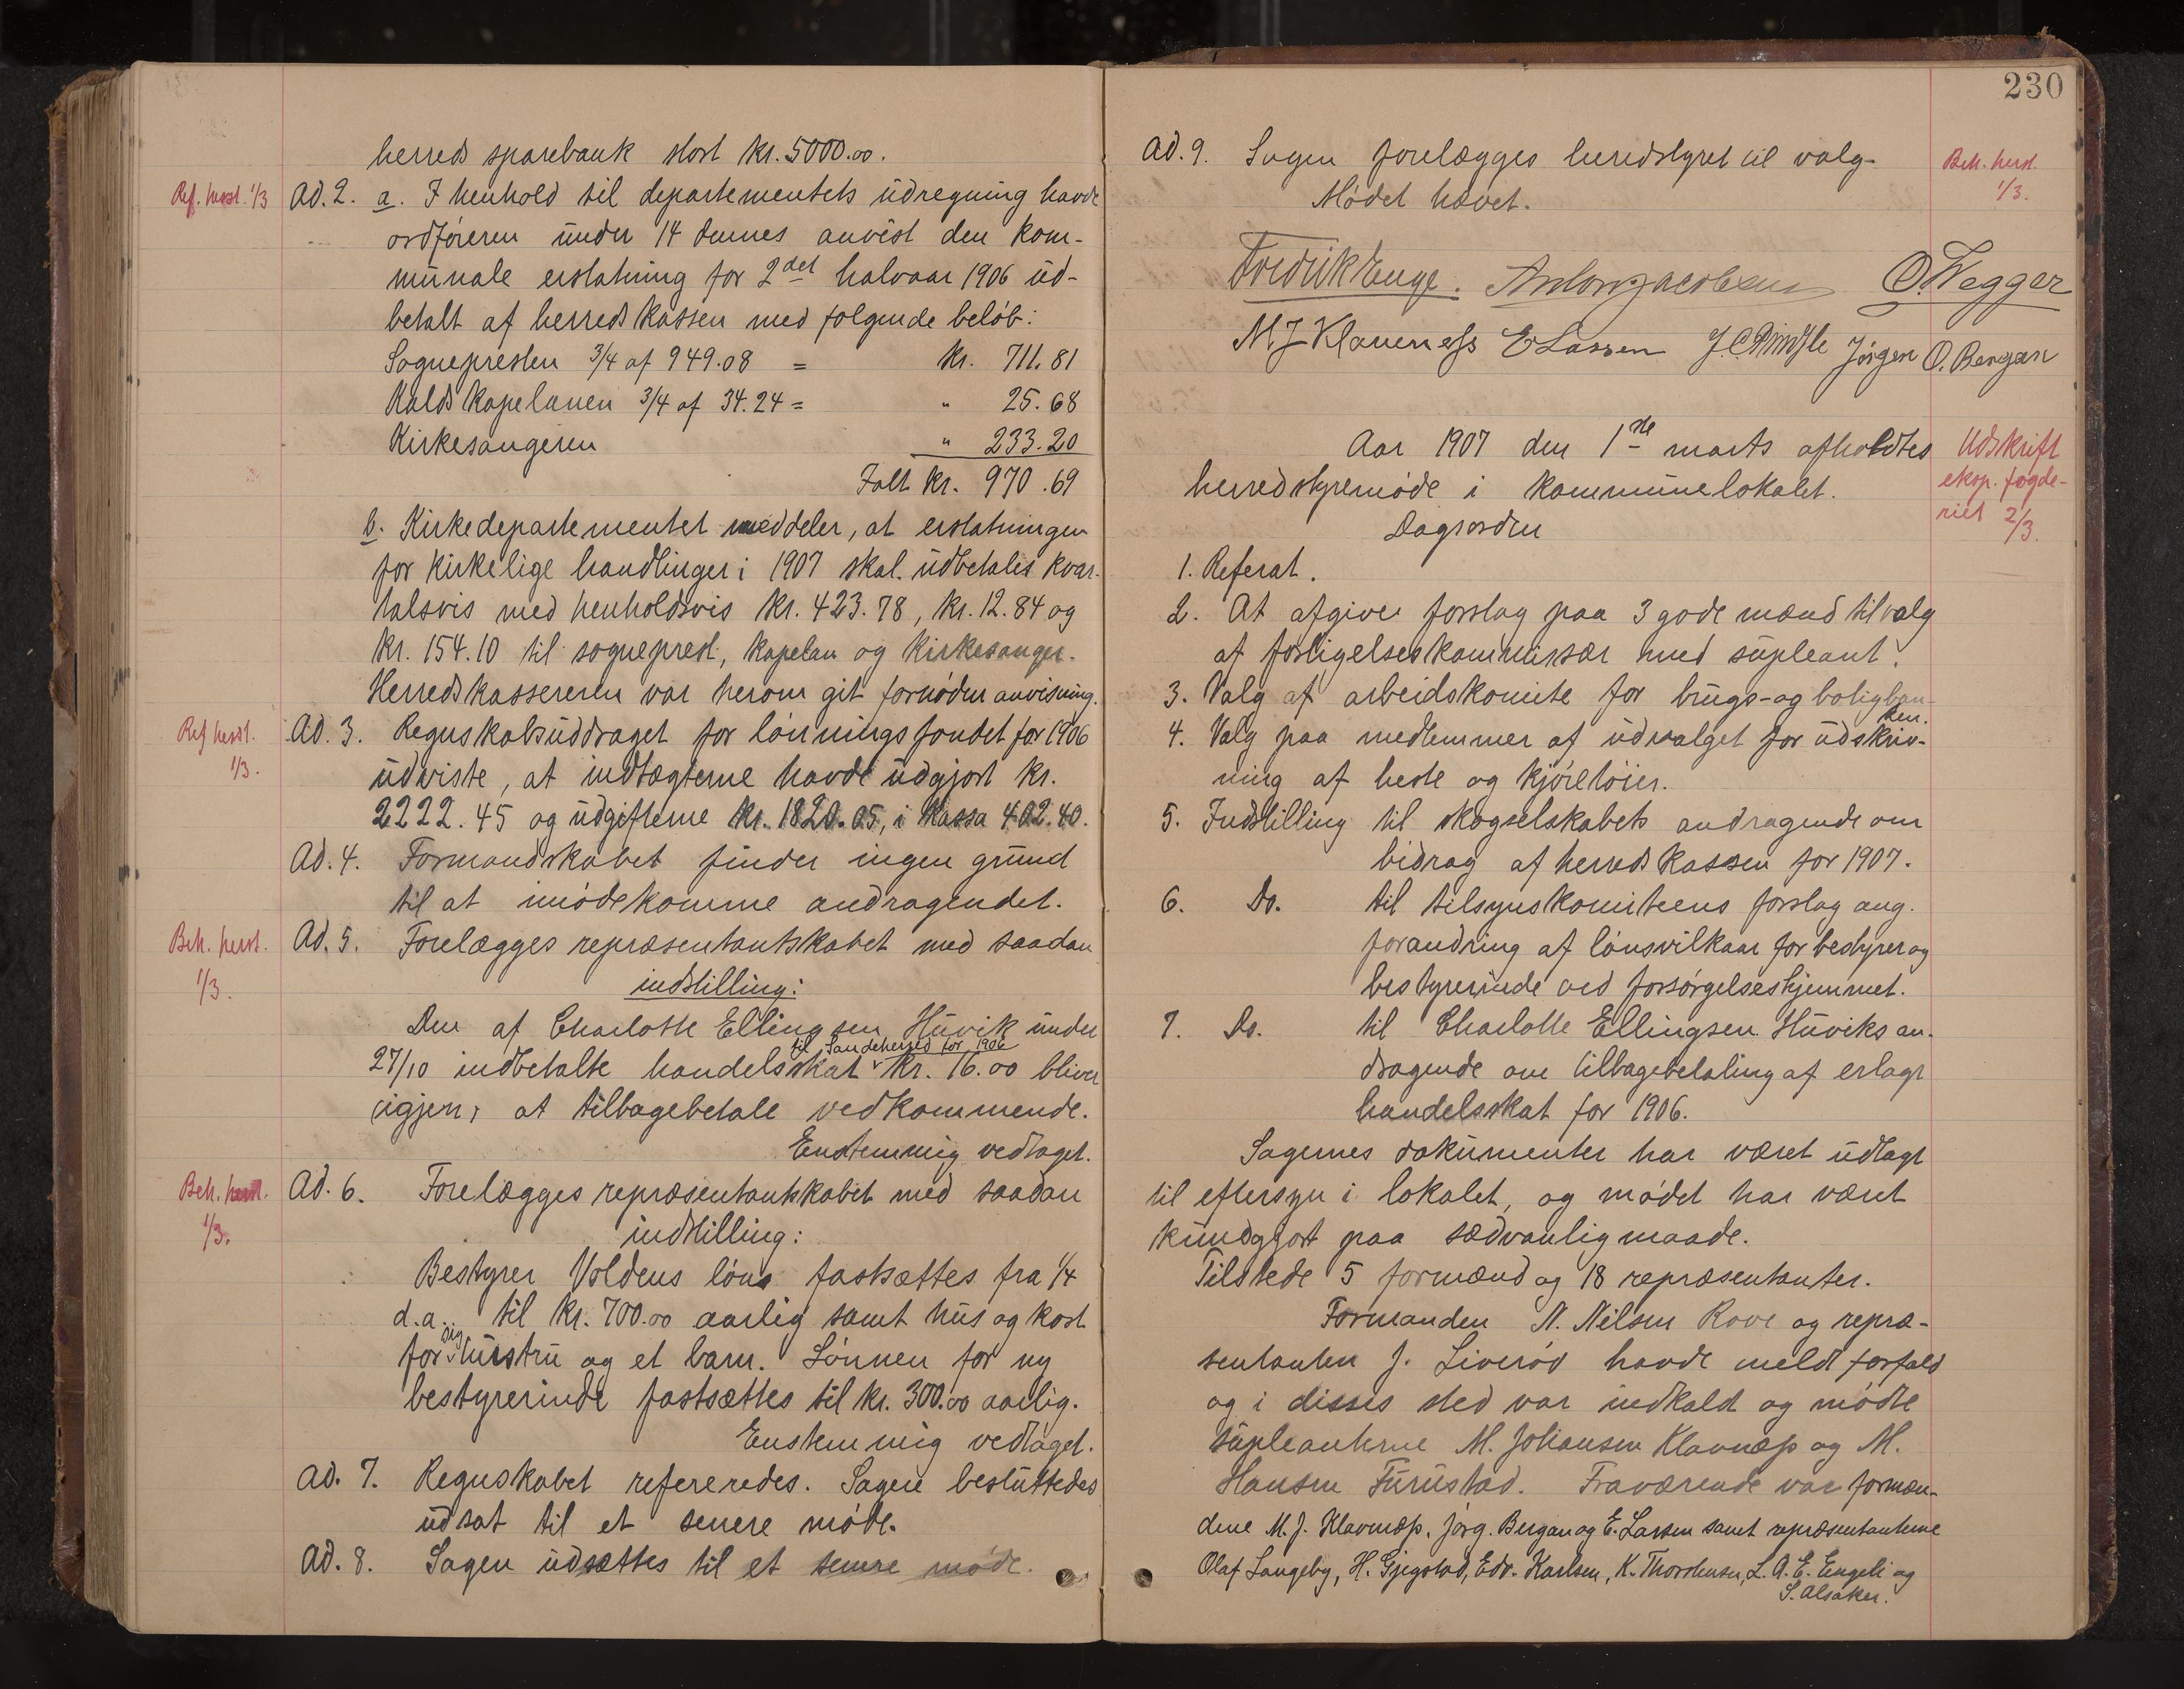 herreds sparebank stort kr. 5000.00.
Ref. herst. 1/3
Ad. 2. a. I henhold til departementets udregning havde
ordføreren under 14 dennes anvist den kom-
munale erstatning for 2det halvaar 1906 ud-
betalt af herredskassen med følgende beløb:
Sognepresten 3/4 af 949.08 = kr. 711.81
Kaldskapelanen 3/4 af 34.24 = " 25.68
Kirkesangeren " 233.20
Ialt kr. 970.69
b. Kirkedepartementet meddeler, at erstatningen
for kirkelige handlinger i 1907 skal udbetales kvar-
talsvis med henholdsvis kr. 423.78, kr. 12.84 og
kr. 154.10 til sogneprest, kapelan og kirkesanger.
Herredskassereren var herom git fornøden anvisning.
Ref herst.
1/3.
Ad. 3. Regnskabsuddraget for lønningsfondet for 1906
udviste, at indtægterne havde udgjort kr.
2222.45 og udgifterne kr. 1820.05, i kassa 402.40.
Ad. 4. Formandskabet finder ingen grund
til at imødekomme andragendet.
Beh. herst.
1/3.
Ad. 5. Forelægges repræsentantskabet med saadan
indstilling:
Den af Charlotte Ellingsen Huvik under
til Sandeherred for 1906
27/10 indbetalte handelsskat kr. 16.00 bliver
(igjen) at tilbagebetale vedkommende.
Enstemmig vedtaget.
Beh. herst.
1/3.
Ad. 6. Forelægges repræsentantskabet med saadan
indstilling:
Bestyrer Voldens løns fastsættes fra 1/4
d.a. til kr. 700.00 aarlig samt hus og kost
sig
for hustru og et barn. Lønnen for ny
bestyrerinde fastsættes til kr. 300.00 aarlig.
Enstemmig vedtaget.
Ad. 7. Regnskabet refereredes. Sagen besluttedes
udsat til et senere møde.
Ad. 8. Sagen udsættes til et senere møde.
230
Ad. 9. Sagen forelægges herredstyret til valg-
Beh. herst.
1/3.
Mødet hævet.
Fredrik Enge. Anton Jacobsen O. Wegger
M J Klaveness E Larsen Jørgen O. Bergan
Aar 1907 den 1ste marts afholdtes
herredstyremøde i kommunelokalet.
Udskrift
eksp. fogde-
riet 2/3.
Dagsorden
1. Referat.
2. At afgive forslag paa 3 gode mænd til valg
af forligelseskommissær med supleant.
3. Valg af arbeidskomite for brugs- og boligban-
ken.
4. Valg paa medlemmer af udvalget for udskriv-
ning af heste og kjøretøier.
5. Indstilling til skogselskabets andragende om
bidrag af herredskassen for 1907.
6. Do. til tilsynskomiteens forslag ang.
forandring af lønsvilkaar for bestyrer og
bestyrerinde ved forsørgelseshjemmet.
7. Do. til Charlotte Ellingsen Huviks an-
dragende om tilbagebetaling af erlagt
handelsskat for 1906.
Sagernes dokumenter har været udlagt
til eftersyn i lokalet, og mødet har været
kundgjort paa sædvanlig maade.
Tilstede 5 formænd og 18 repræsentanter.
Formanden N. Nilsen Rove og repræ-
sentanten J. Liverød havde meldt forfald
og i disses sted var indkaldt og mødte
supleanterne M. Johansen Klavnæs og M.
Hansen Furustad. Fraværende var formæn-
dene M. J. Klavnæs, Jørg. Bergan og E. Larsen samt repræsentanterne
Olaf Langeby, H. Gjegstad, Edv. Karlsen, K. Thorstensen, L. A. E. Engeli og
S. Alsaker.